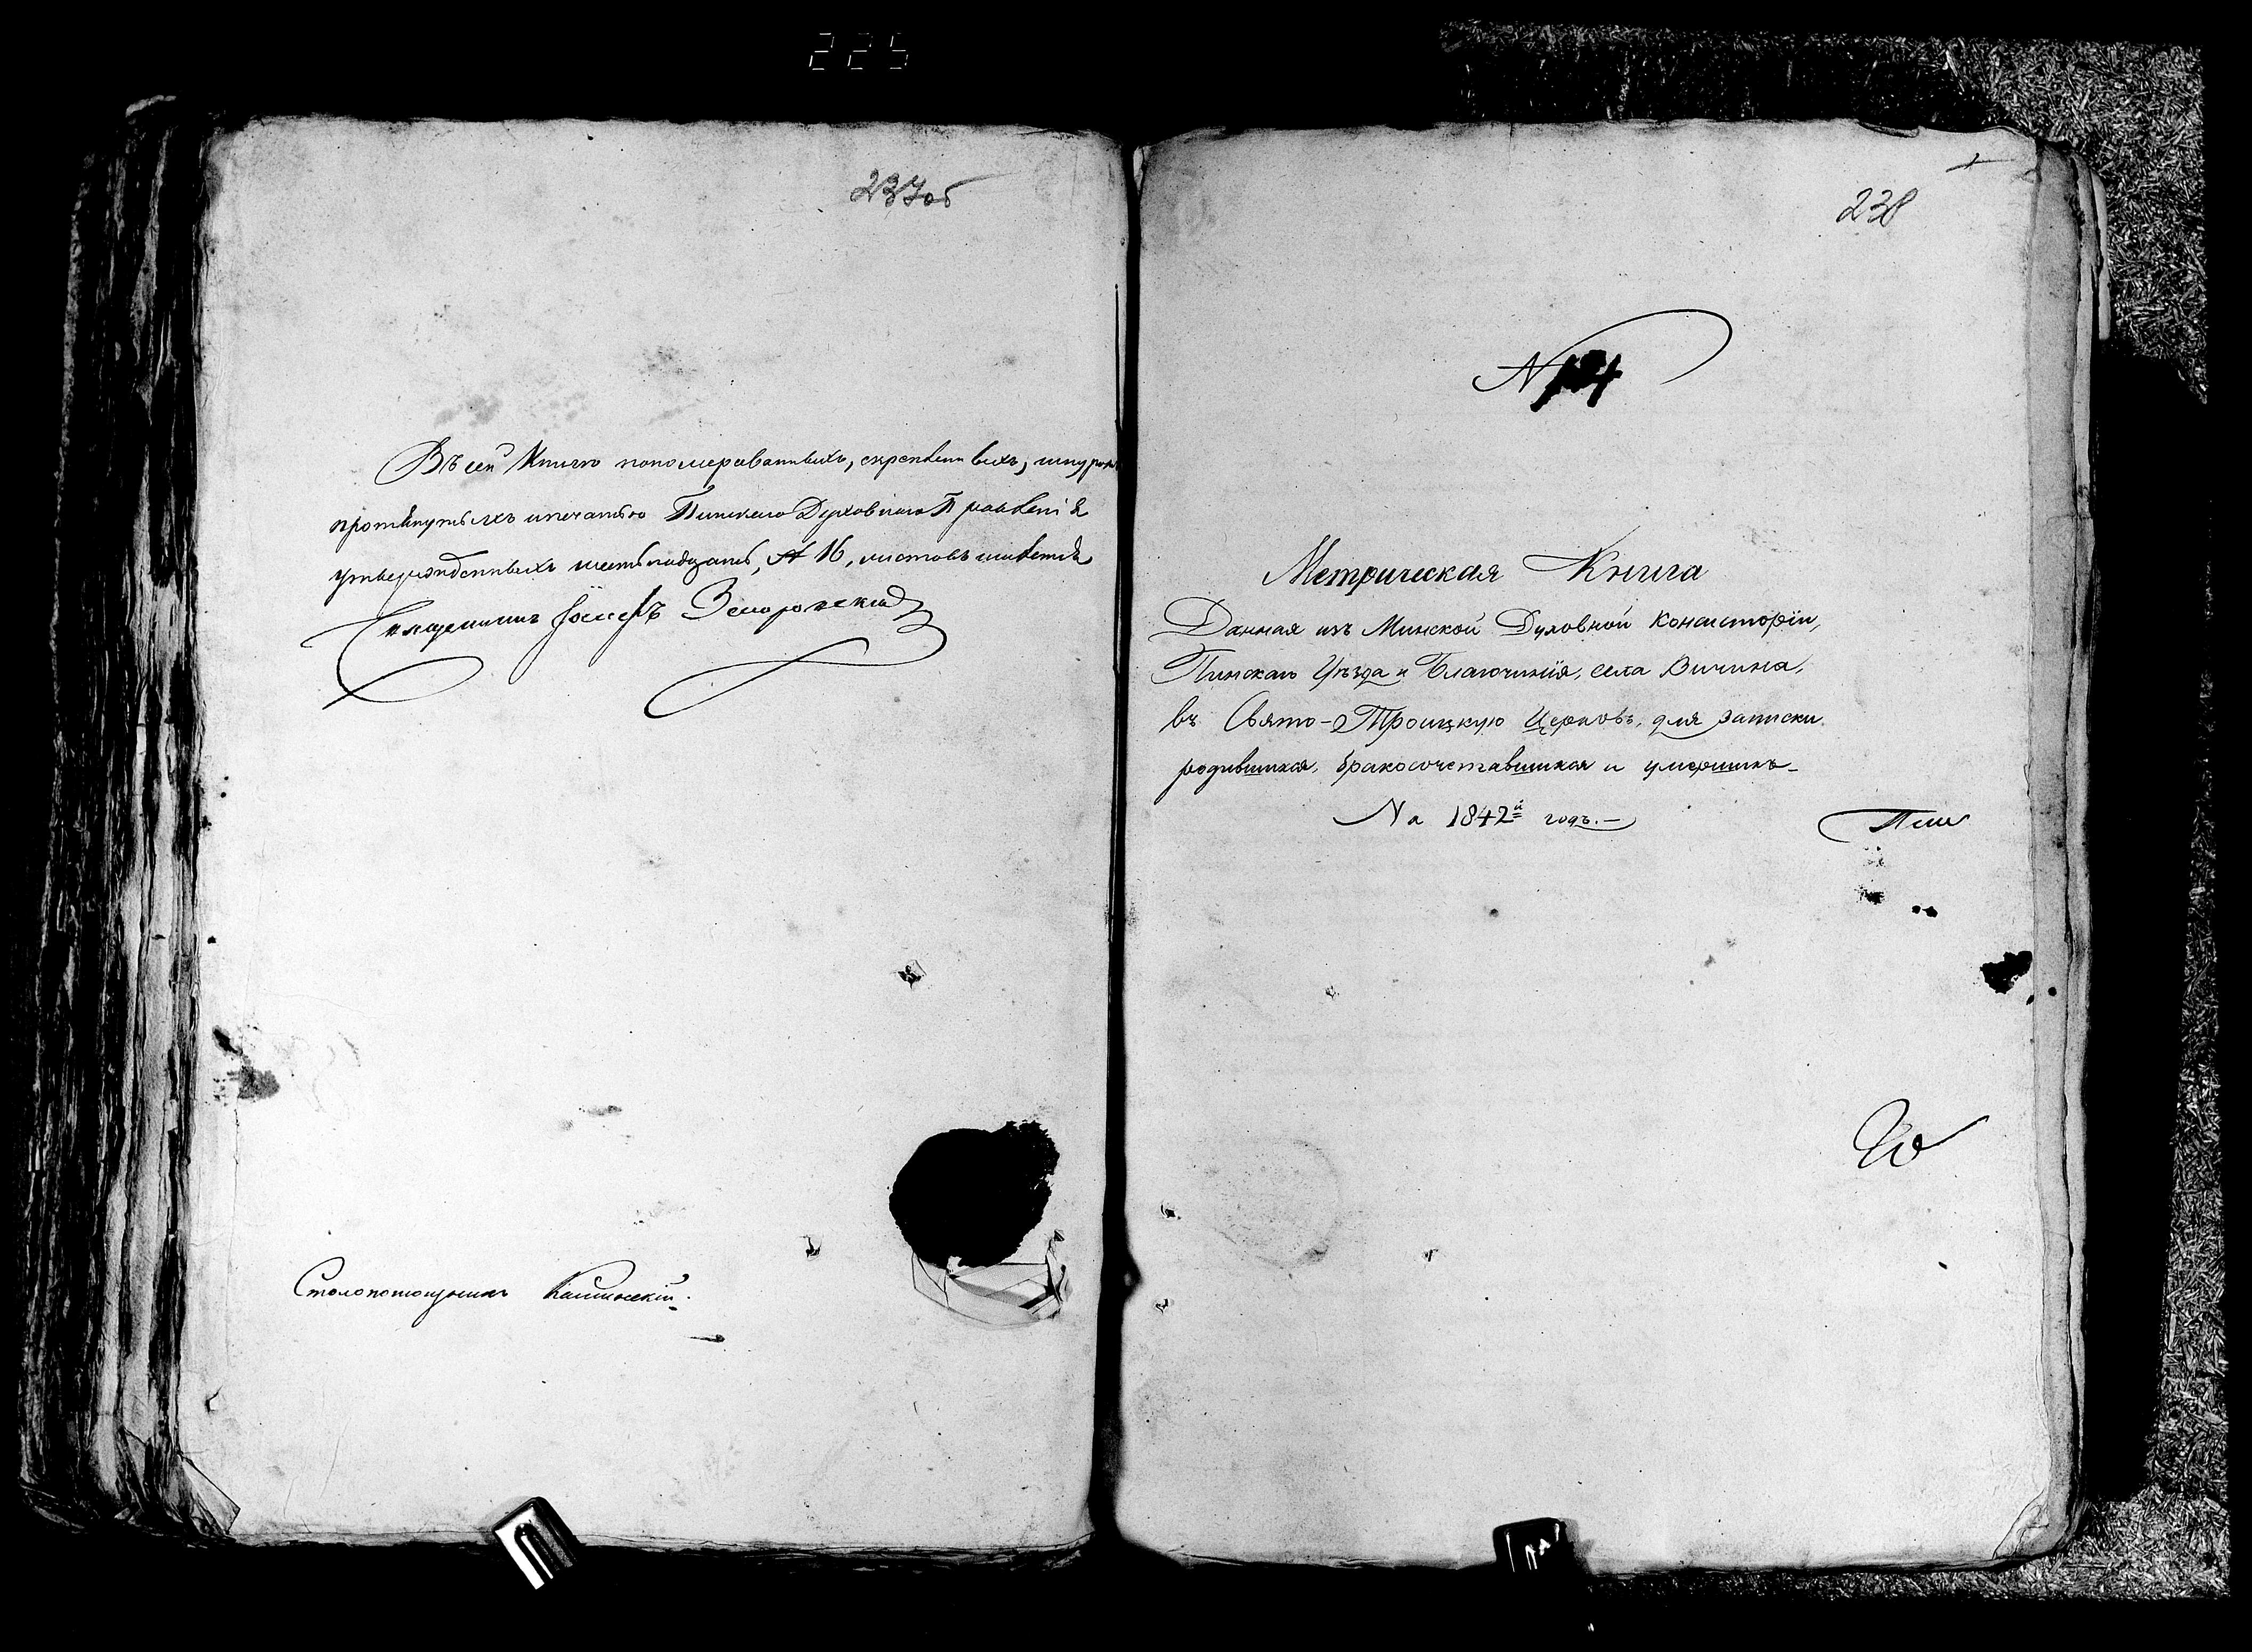 225
237об
Въ сей Книгѣ пономерованныхъ, скрепленныхъ, шнуромъ
протянутыхъ и печатью Пинскаго Духовнаго Правленія
утвержденныхъ шестьнадцать, № 16, листовъ имѣется
Священникъ Іосифъ
Столоначальникъ
238
N
Метрическая Книга
Данная изъ Минской Духовной Консисторіи,
Пинскаго Уѣзда и Благочинія, села Вичина,
въ Свято-Троицкую Церковь, для записки
родившихся, бракосочетавшихся и умершихъ_
На 1842й годъ.—